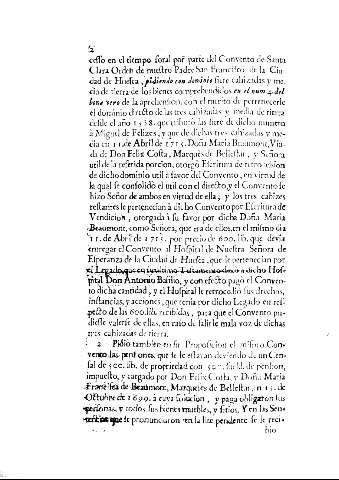 2
cesso en el tiempo foral por parte del Convento de Santa
Clara Orden de nuestro Padre San Francisco de la Ciu-
dad de Huesca, pidiendo con dominio siete cahizadas y me-
dia de tierra de los bienes comprehendidos en el num. 4. del
bene vero de la aprehension, con el merito de pertenecerle
el dominio directo de las tres cahizadas y media de tierra
desde el año 1538. que tributó las siete de dicho numero
à Miguel de Felizes, y que de dichas tres cahizadas y me-
dia en 11. de Abril de 1715. Doña Maria Beaumont, Viu-
da de Don Felix Costa, Marqués de Bellestar, y Señora
util de la referida porcion, otorgó Escritura de retrovesion
de dicho dominio util à favor del Convento, en virtud de
la qual se consolidó el util con el directo, y el Convento se
hizo Señor de ambos en virtud de ella; y los tres cahizes
restantes le pertenecian à dicho Convento por Escritura de
Vendicion, otorgada à su favor por dicha Doña Maria
Beaumont, como Señora, que era de ellos, en el mismo dia
11. de Abril de 1715. por precio de 600. lib. que devia
entregar el Convento al Hospital de Nuestra Señora de
Esperanza de la Ciudad de Huesca, que le pertenecian por
el Legado, que en su ultimo Testamento dexó à dicho Hos-
pital Don Antonio y con efecto pagó el Conven-
to dicha cantidad, y el Hospital le retrocedió sus derechos,
instancias, y acciones, que tenia por dicho Legado en res-
pecto de las 600. lib. recibidas, para que el Convento pu-
diesse valerse de ellas, en caso de salirle mala voz de dichas
tres cahizadas de tierra.
2 Pidió tambien en su Proposicion el mismo Con-
vento las pensiones, que se le estavan deviendo de un Cen-
sal de 500. lib. de propriedad con de pension,
impuesto, y cargado por Don Felix Costa, y Doña Maria
Francisca de Beaumont, Marqueses de Bellestar, en 15. de
Octubre de 1690. à cuya solucion, y paga obligaron sus
personas, y todos sus bienes muebles, y sitios. Y en las Sen-
tencias que se pronunciaron en la lite pendente se le reci-
bio